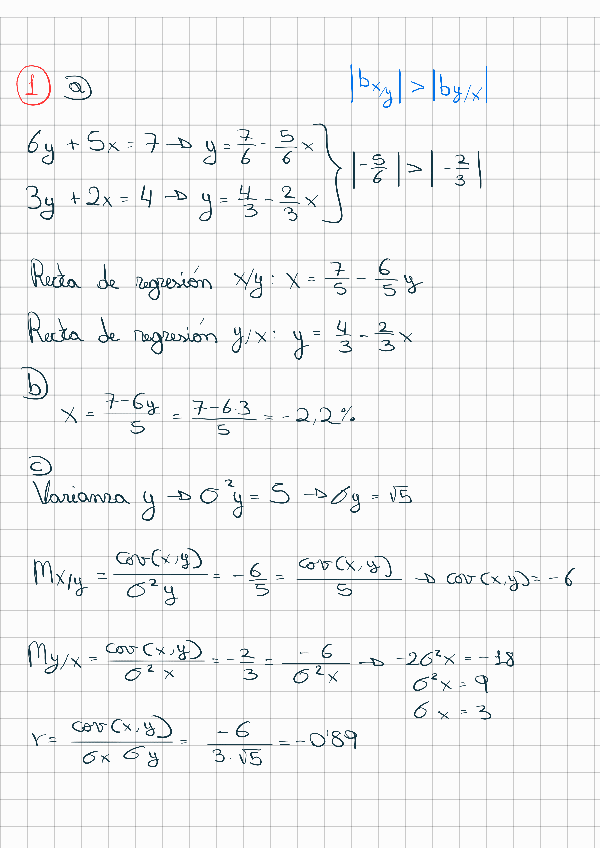 1 a |bx/y| > |by/x|
6y + 5x = 7 → y = 7/6 - 5/6 x
|-5/6| > |-2/3|
3y + 2x = 4 → y = 4/3 - 2/3 x
Recta de regresión x/y: x = 7/5 - 6/5 y
Recta de regresión y/x: y = 4/3 - 2/3 x
b
x = 7-6y/5 = 7-6·3/5 = -2,2%
c
Varianza y → σ²y = 5 → σy = √5
Mx/y = cov(x,y)/σ²y = -6/5 = cov(x,y)/5 → cov(x,y) = -6
My/x = cov(x,y)/σ²x = -2/3 = -6/σ²x → -2σ²x = -18
σ²x = 9
σx = 3
r = cov(x,y)/σx σy = -6/3·√5 = -0'89